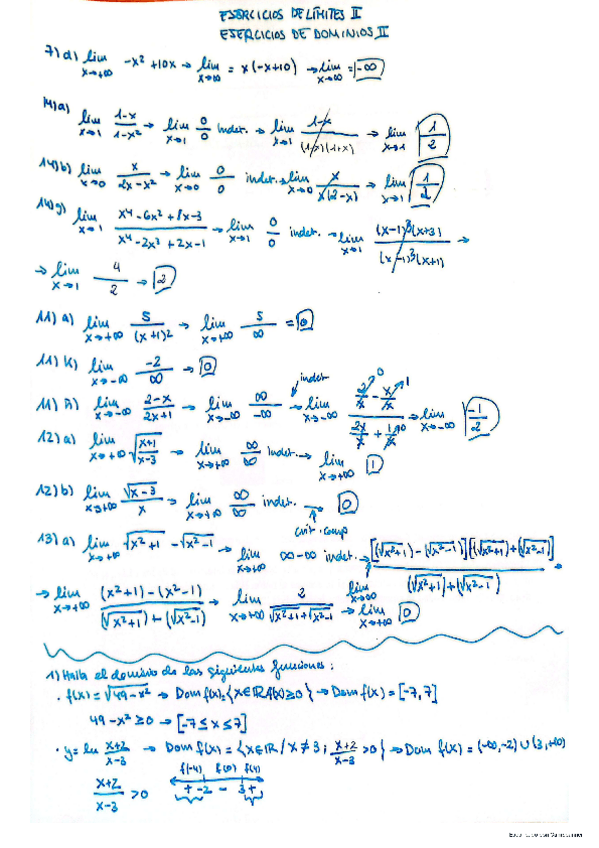 EJERCICIOS DE LÍMITES II
EJERCICIOS DE DOMINIOS II
7) d) lim x→+∞ -x² + 10x → lim x→∞ = x(-x+10) → lim x→∞ = -∞
14) a) lim x→1 (1-x)/(1-x²) → lim x→1 0/0 indet. → lim x→1 (1-x)/((1-x)(1+x)) → lim x→1 1/2
14) b) lim x→0 x/(2x-x²) → lim x→0 0/0 indet. → lim x→0 x/(x(2-x)) → lim x→1 1/2
14) g) lim x→1 (x⁴-6x²+8x-3)/(x⁴-2x³+2x-1) → lim x→1 0/0 indet. → lim x→1 ((x-1)³(x+3))/((x-1)³(x+1)) →
→ lim x→1 4/2 → 2
11) a) lim x→+∞ 5/(x+1)² → lim x→+∞ 5/∞ = 0
11) K) lim x→-∞ -2/∞ → 0
indet
11) ñ) lim x→-∞ (2-x)/(2x+1) → lim x→-∞ ∞/-∞ → lim x→-∞ (2/x - x/x)/(2x/x + 1/x) → lim x→-∞ -1/2
12) a) lim x→+∞ √((x+1)/(x-3)) → lim x→+∞ ∞/∞ indet. → lim x→+∞ 1
12) b) lim x→+∞ √(x-3)/x → lim x→+∞ ∞/∞ indet. → 0
crit. comp
13) a) lim x→+∞ √(x²+1) - √(x²-1) → lim x→+∞ ∞-∞ indet. → lim x→∞ [(√(x²+1)) - (√(x²-1))]·[(√(x²+1)) + (√(x²-1))]/((√(x²+1)) + (√(x²-1))) →
→ lim x→+∞ ((x²+1) - (x²-1))/((√(x²+1)) + (√(x²-1))) → lim x→+∞ 2/(√(x²+1) + √(x²-1)) → lim x→+∞ 0
1) Halla el dominio de las siguientes funciones:
· f(x) = √(49-x²) → Dom f(x) = {x∈ℝ/f(x)≥0} → Dom f(x) = [-7,7]
49-x² ≥ 0 → [-7 ≤ x ≤ 7]
· y = ln (x+2)/(x-3) → Dom f(x) = {x∈ℝ / x ≠ 3 ; (x+2)/(x-3) > 0} → Dom f(x) = (-∞,-2) ∪ (3,+∞)
f(-4) f(0) f(4)
(x+2)/(x-3) > 0 + -2 - 3 +